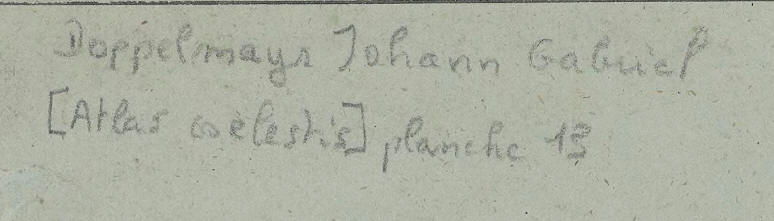 Doppelmayr Johann Gabriel
[Atlas coelestis] planche 13